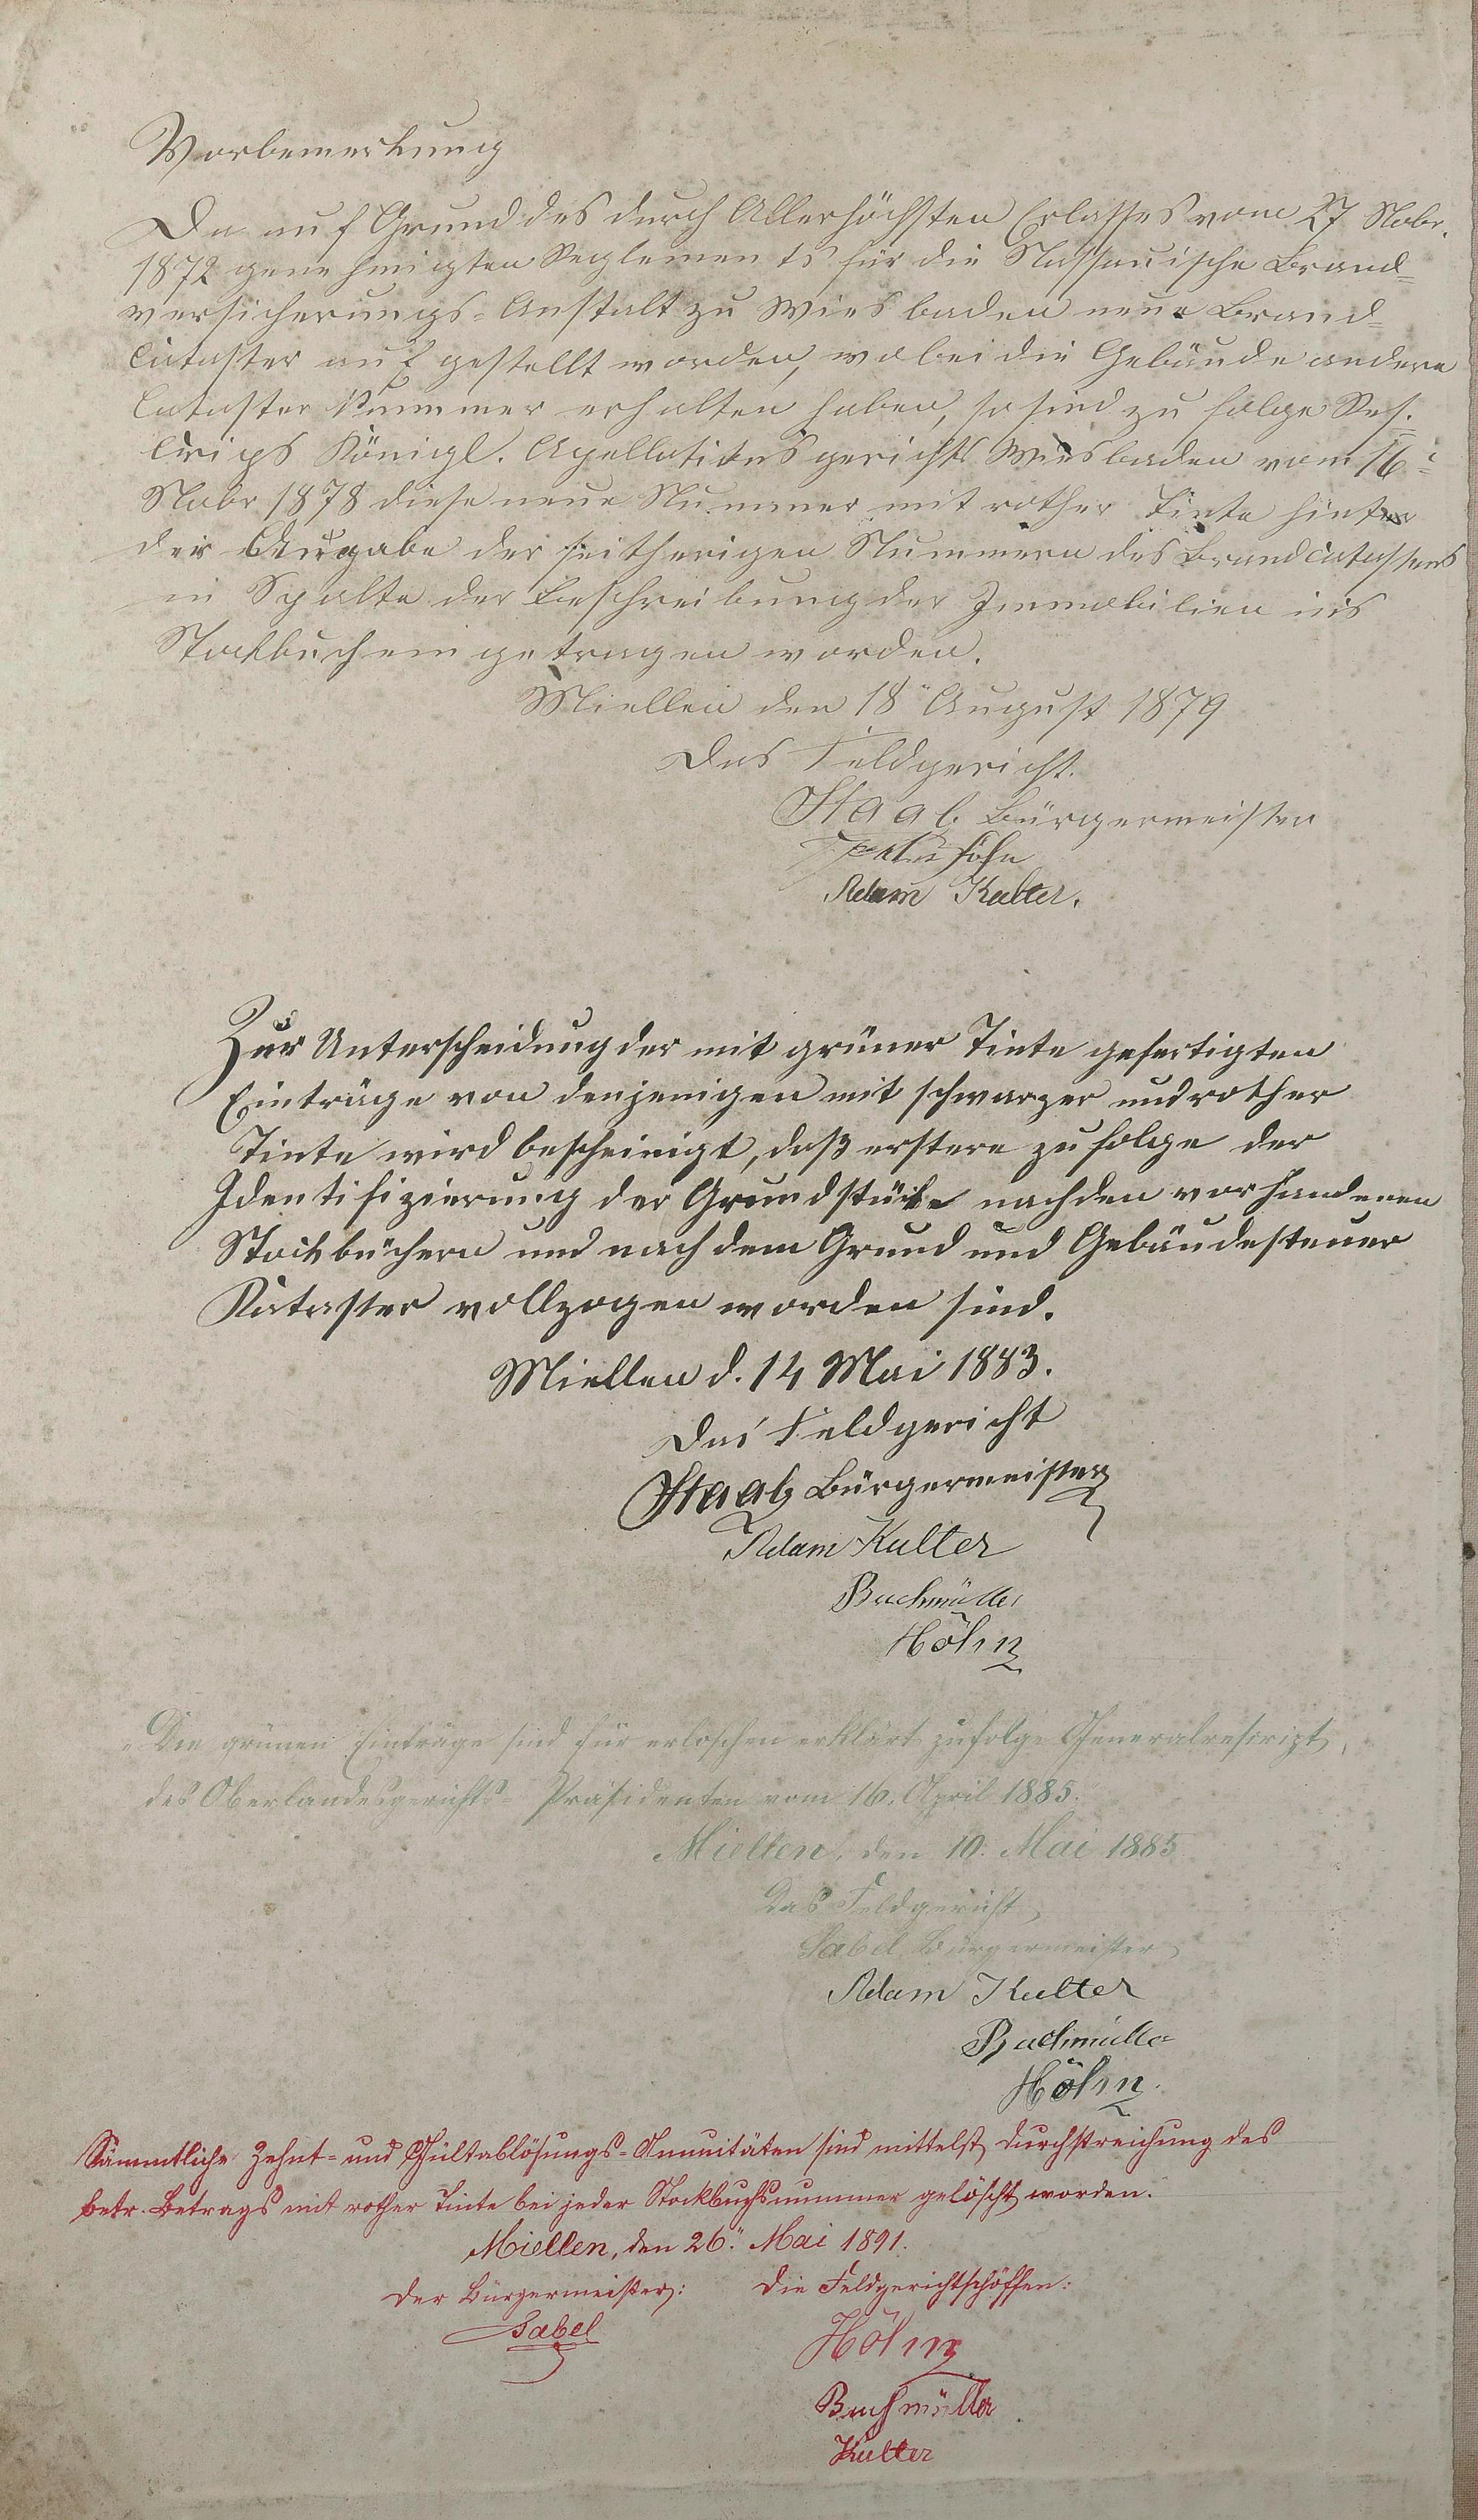 Vorbemerkung
Da auf Grund des durch Allerhöchsten Erlasses vom 27 Nobr.
1872 genehmigten Reglements für die Nassauische Brand=
versicherungs-Anstalt zu Wiesbaden neue Brand=
Cataster aufgestellt worden, wobei die Gebäude andere
Cataster Nummer erhalten haben, so sind zu folge Res=
crips Königl. Apellationsgerichts Wiesbaden vom 16t
Nobr 1878 diese neue Nummer mit rother Tinte hinter
der Angabe der seitherigen Nummern des Brandcatasters
in Spalte der Beschreibung der Immobilien ins
Stockbuch eingetragen worden.
Miellen den 18" August 1879
Das Feldgericht.
Staab Bürgermeister
Höhn
Adam Kulter.
Zur Unterscheidung der mit grüner Tinte gefertigten
Einträge von denjenigen mit schwarzer und rother
Tinte wird bescheinigt, daß erstere zufolge der
Identifizierung der Grundstücke nach den vorhandenen
Stockbüchern und nach dem Grund und Gebäudesteuer
Kataster vollzogen worden sind.
Miellen d. 14 Mai 1883.
Das Feldgericht
Staab Bürgermeister
Adam Kulter
Bachmüller
Höhn
Die grünen Einträge sind für erloschen erklärt zufolge Generalrescript,
des Oberlandesgerichts-Präsidenten vom 16. April 1885.
Miellen, den 10. Mai 1885
Das Feldgericht
Sabel, Bürgermeister
Adam Kulter
Bachmüller
Höhn.
Sämmtliche Zehnt- und Gültablösungs-Annuitäten sind mittelst Durchstreichung des
betr. Betrags mit rother Tinte bei jeder Stockbuchsnummer gelöscht worden.
Miellen, den 26." Mai 1891.
Der Bürgermeister: Die Feldgerichtschöffen:
Sabel Höhn
Bachmüller
Kulter